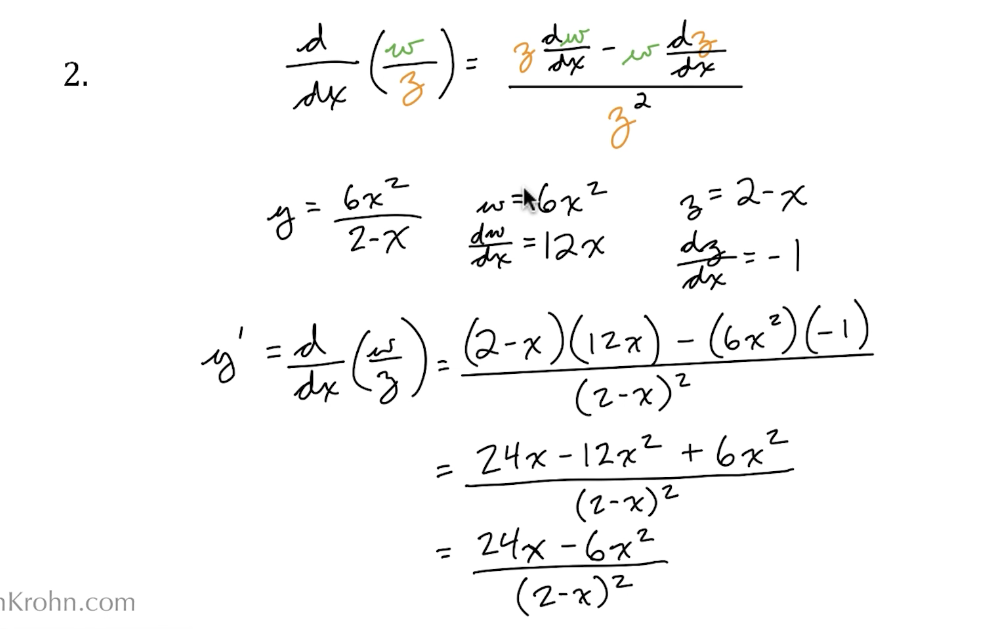 2. d/dx (w/z) = (z dw/dx - w dz/dx)/z²
y = 6x²/(2-x) w = 6x² z = 2-x
dw/dx = 12x dz/dx = -1
y' = d/dx (w/z) = ((2-x)(12x) - (6x²)(-1))/(2-x)²
= (24x - 12x² + 6x²)/(2-x)²
= (24x - 6x²)/(2-x)²
nKrohn.com